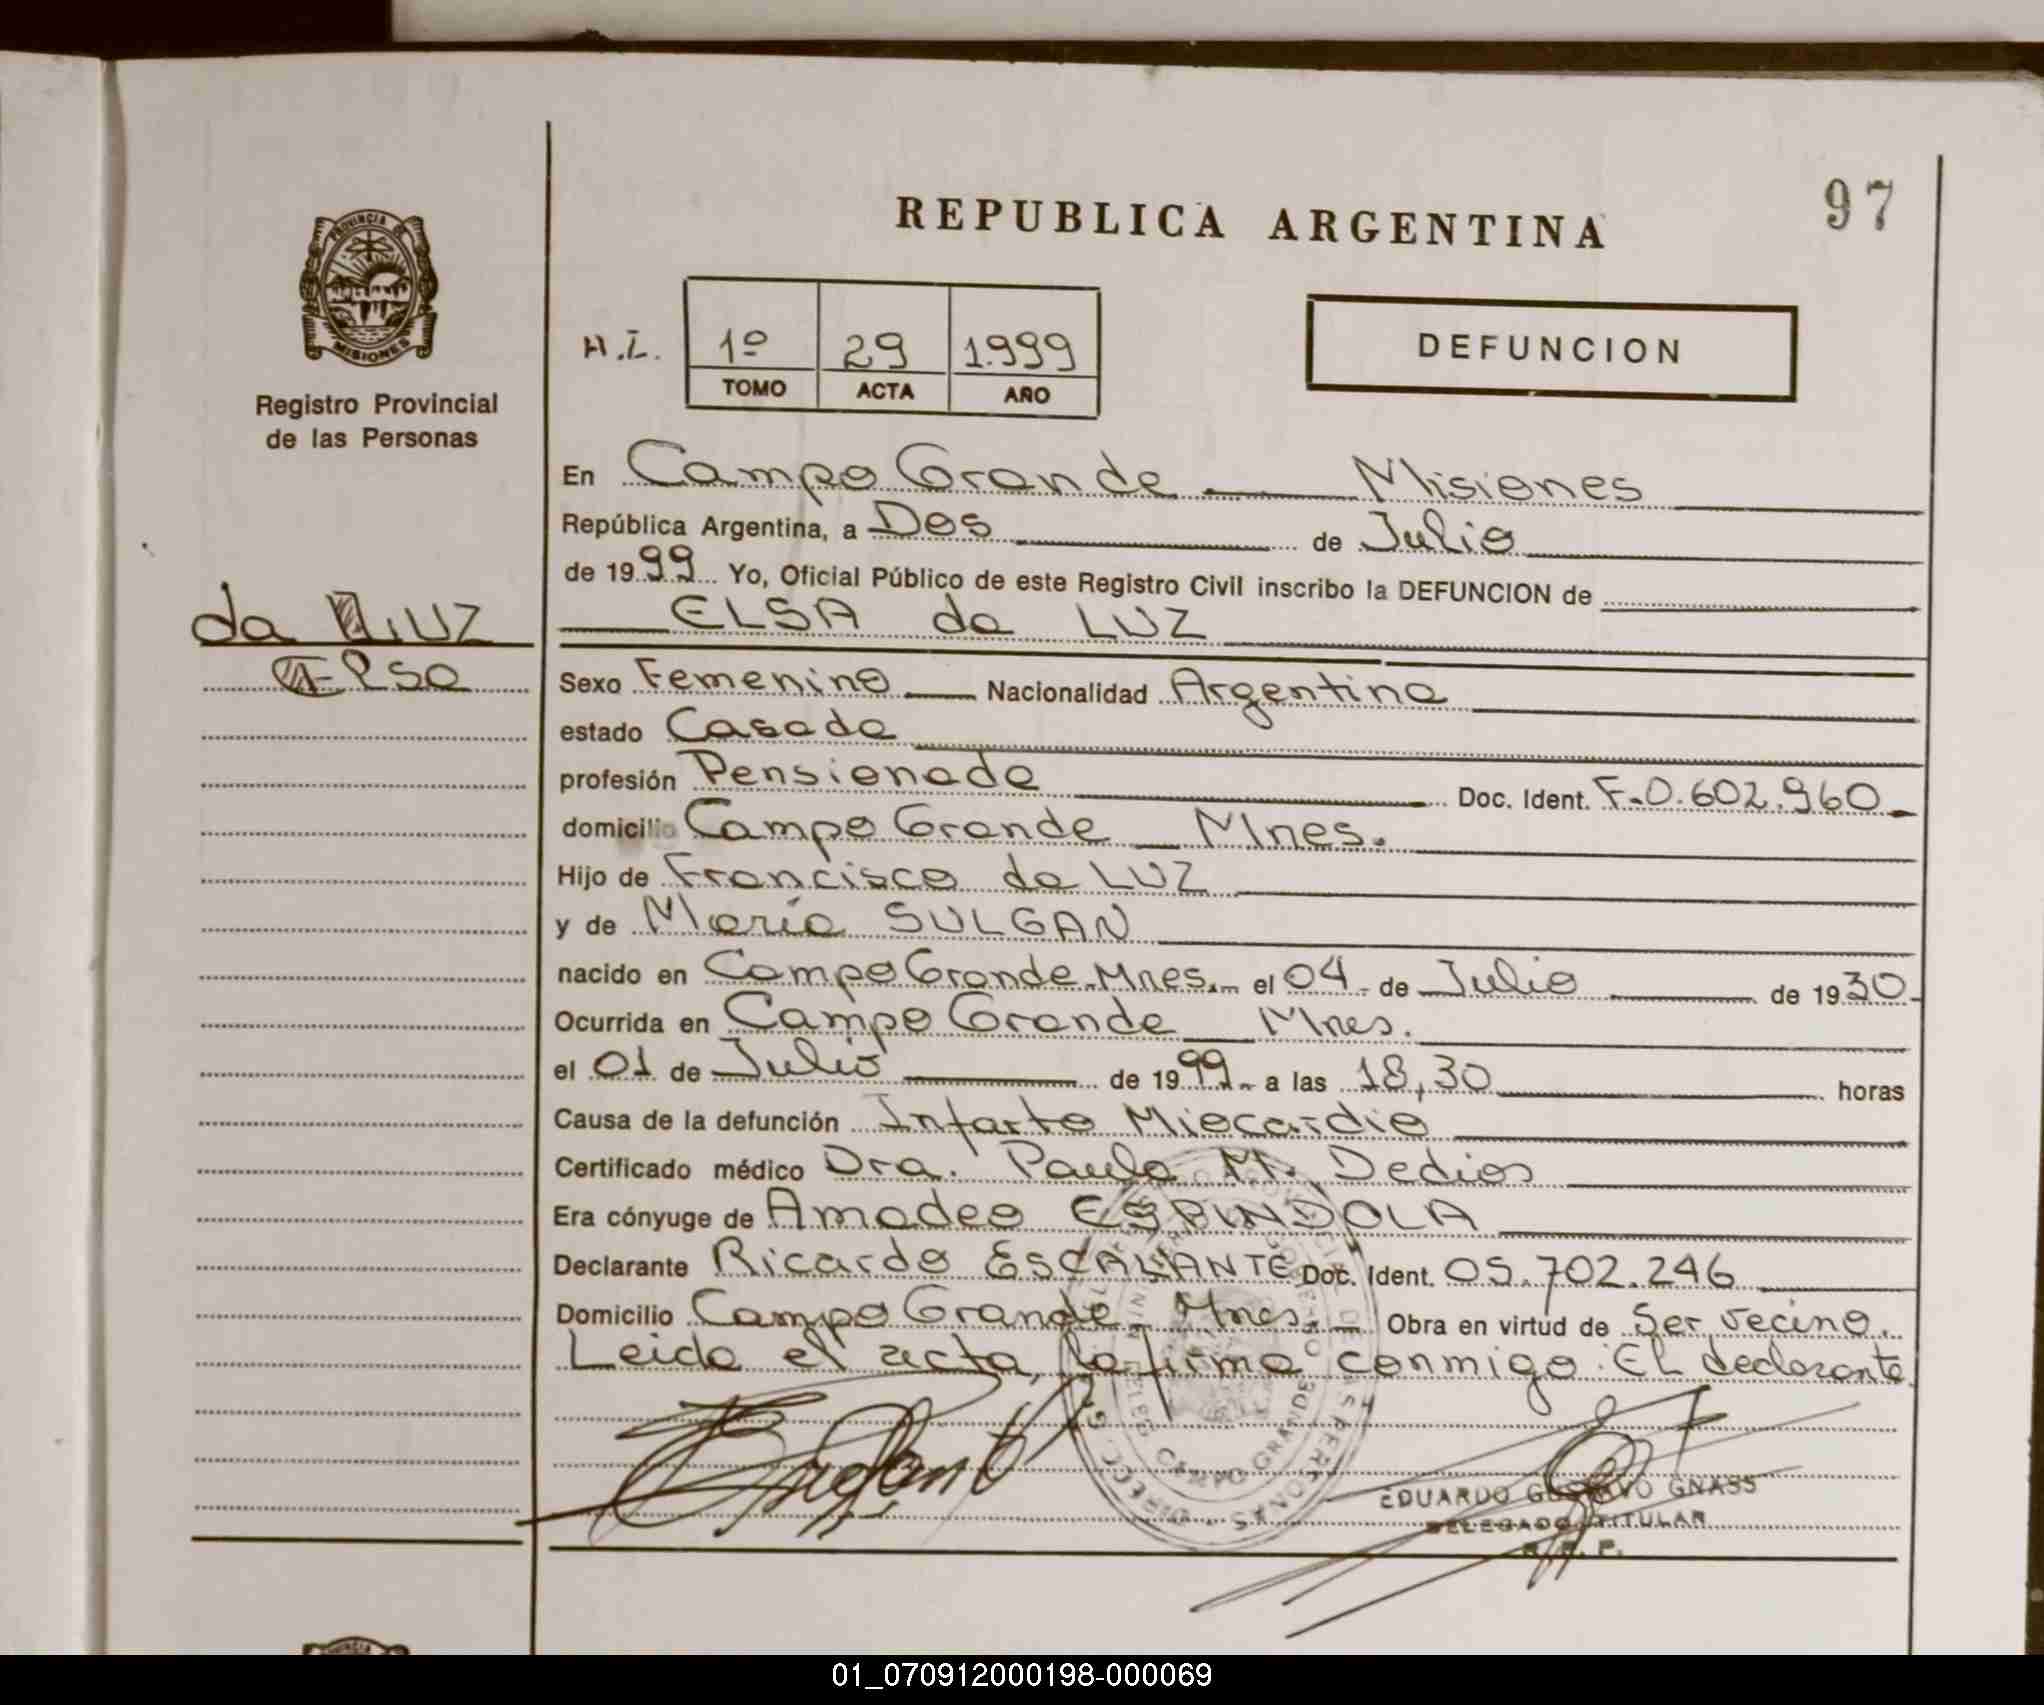 97
REPUBLICA ARGENTINA
PROVINCIA DE
MISIONES
Registro Provincial
de las Personas
H.I.
1º 29 1.999
TOMO ACTA AÑO
DEFUNCION
da LUZ
Elsa
En Campo Grande Misiones
República Argentina, a Dos de Julio
de 1999 Yo, Oficial Público de este Registro Civil inscribo la DEFUNCION de
ELSA da LUZ
Sexo Femenino Nacionalidad Argentina
estado Casada
profesión Pensionada Doc. Ident. F-0.602.960
domicilio Campo Grande Mnes.
Hijo de Francisco da LUZ
y de María SULGAN
nacido en Campo Grande-Mnes. el 04 de Julio de 1930
Ocurrida en Campo Grande Mnes.
el 01 de Julio de 1999 a las 18,30 horas
Causa de la defunción Infarto Miocardio
Certificado médico Dra. Paula M. Dedios
Era cónyuge de Amadeo ESPINDOLA
Declarante Ricardo ESCALANTE Doc. Ident. 05.702.246
Domicilio Campo Grande, Mnes. Obra en virtud de Ser vecino.
Leida el acta, la firma conmigo: El declarante.
CAMPO GRANDE
EDUARDO GUSTAVO GNASS
DELEGADO TITULAR
R. P. P.
01_070912000198-000069